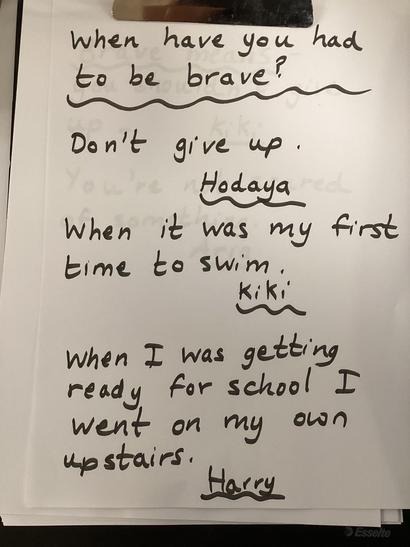 When have you had
to be brave?
Don't give up.
Hodaya
When it was my first
time to swim.
Kiki
When I was getting
ready for school I
went on my own
upstairs.
Harry
Esselte